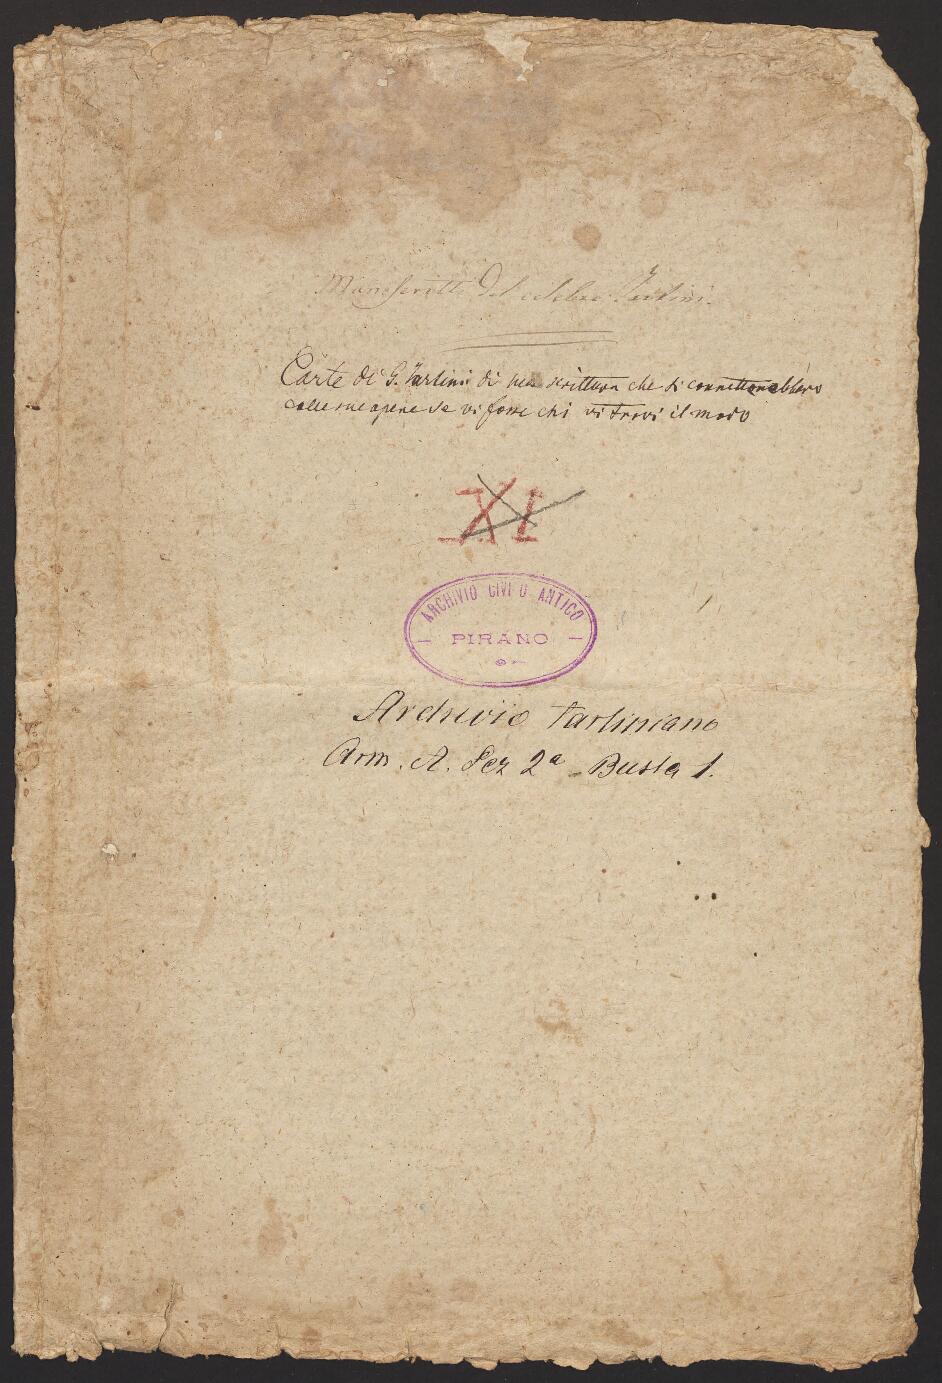 Manoscritti del celebre Tartini.
Carte di G. Tartini di sua scrittura che si connettonebbero
colle sue opere se vi fosse chi vi trovi il modo
XI
ARCHIVIO CIVICO ANTICO
PIRANO
Archivio Tartiniano
Arm. A. Sez 2a Busta 1.